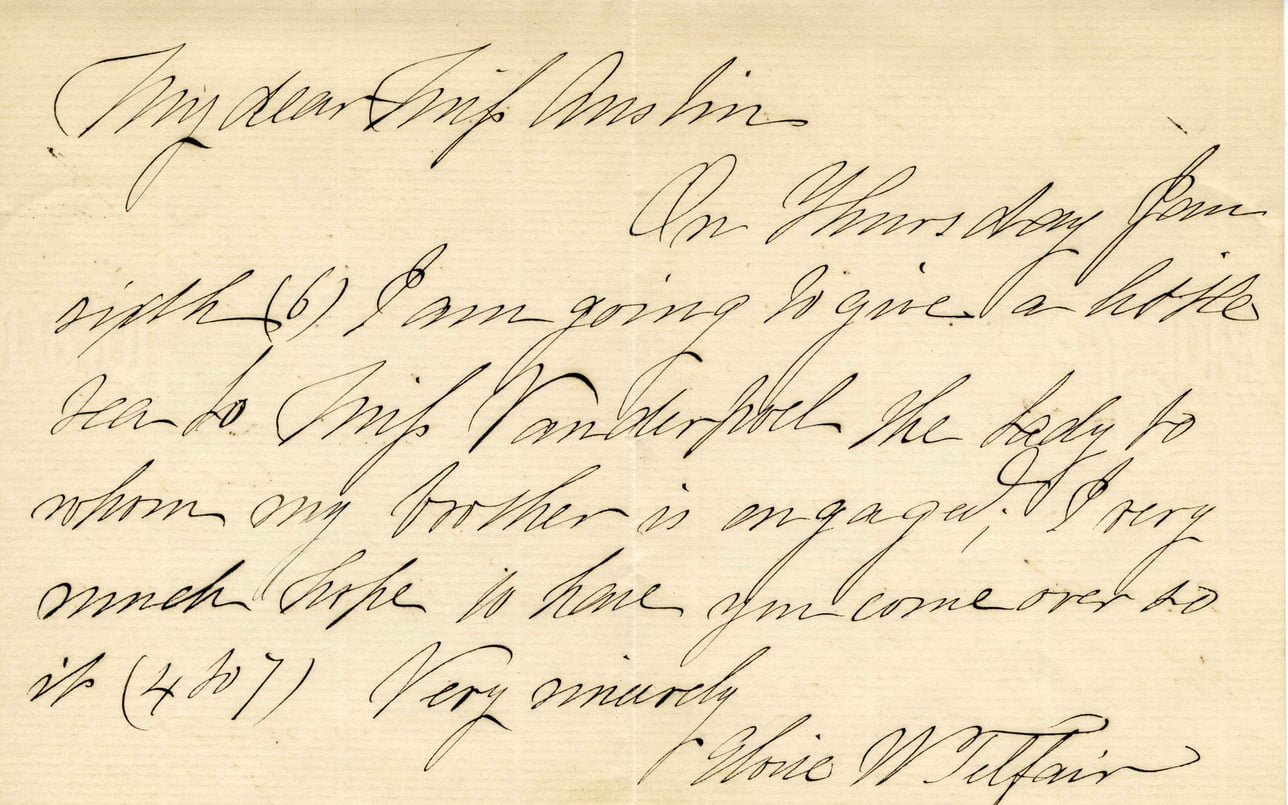 My dear Miss Austin
On Thursday Jan
sixth (6) I am going to give a little
tea to Miss Vanderpoel the lady to
whom my brother is engaged; I very
much hope to have you come over to
it (4 to 7) Very sincerely
Eloise W Telfair